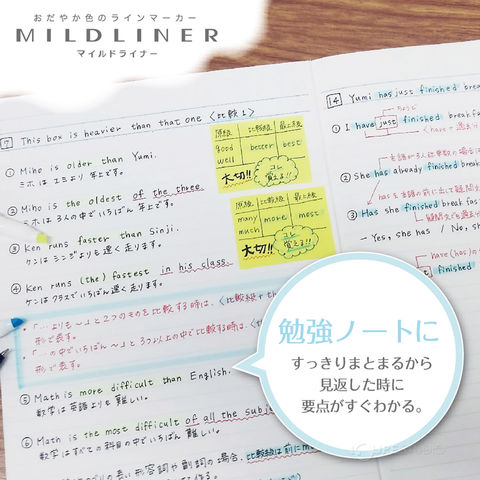 おだやか色のラインマーカー
MILDLINER
マイルドライナー
7 This box is heavier than that one 〈比較1〉
① Miho is older than Yumi.
ミホは エミより 年上です。
② Miho is the oldest of the three.
ミホは 3人の中でいちばん 年上です。
③ Ken runs faster than Sinji.
ケンは シンジよりも速く走ります。
④ Ken runs (the) fastest in his class.
ケンは クラスでいちばん速く走ります。
「…よりも~」と2つのものを比較する時は、〈比較級+th
形で表す。
「…の中でいちばん~」と3つ以上の中で比較する時は、〈th
形で表す。
⑤ Math is more difficult than English.
数学は 英語よりも 難しい。
⑥ Math is the most difficult of all the subje
数学はすべての科目の中でいちばん 難しい。
の長い形容詞や副詞の場合、比較級は前にm
原級 比較級 最上級
good better best
well
大切!! コレ覚える!!
原級 比較級 最上級
many more most
much
大切!! コレ覚える!!
14 Yumi has just finished break
ちょうど
① I have just finished breakfa
② She has already finished break
③ Has she finished breakfas
- Yes, she has / No, sh
have(has)
finished
勉強ノートに
すっきりまとまるから
見返した時に
要点がすぐわかる。